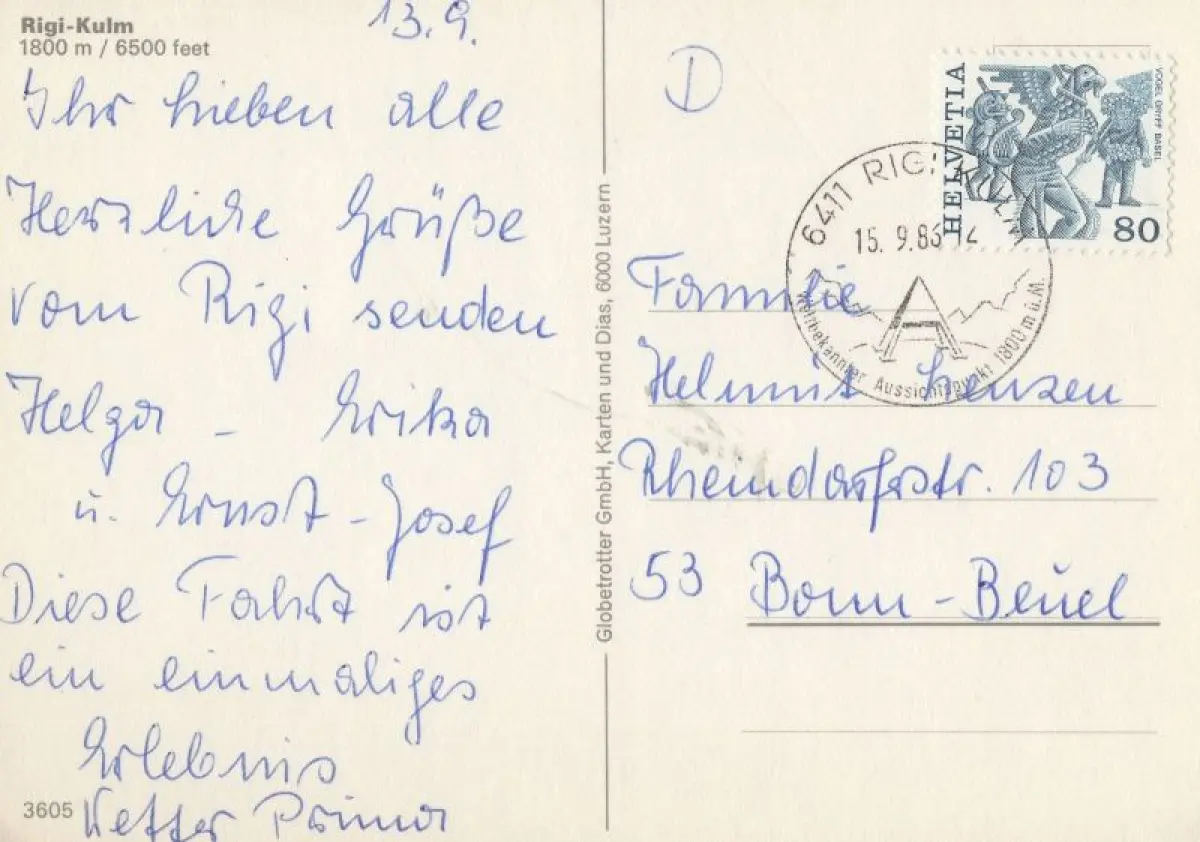 Rigi-Kulm
1800 m / 6500 feet
13.9.
Ihr lieben alle
Herzliche Grüße
vom Rigi senden
Helga - Erika
u. Ernst-Josef
Diese Fahrt ist
ein einmaliges
Erlebnis
Wetter Prima
3605
Globetrotter GmbH, Karten und Dias, 6000 Luzern
D
HELVETIA
VOGEL GRYFF BASEL
80
6411 RIGI KULM
15. 9.86-12
Weltbekannter Aussichtspunkt 1800 m ü. M.
Familie
Helmut
Rheindorfstr. 103
53 Bonn-Beuel